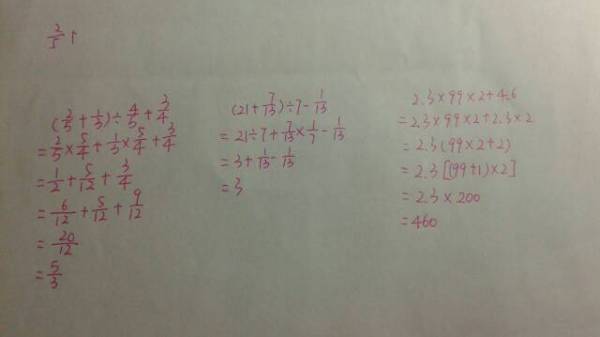 2/5 ↑
(2/5 + 1/3) ÷ 4/5 + 3/4
= 2/5 × 5/4 + 1/3 × 5/4 + 3/4
= 1/2 + 5/12 + 3/4
= 6/12 + 5/12 + 9/12
= 20/12
= 5/3
(21 + 7/13) ÷ 7 - 1/13
= 21 ÷ 7 + 7/13 × 1/7 - 1/13
= 3 + 1/13 - 1/13
= 3
2.3 × 99 × 2 + 4.6
= 2.3 × 99 × 2 + 2.3 × 2
= 2.3 (99 × 2 + 2)
= 2.3 [(99 + 1) × 2]
= 2.3 × 200
= 460